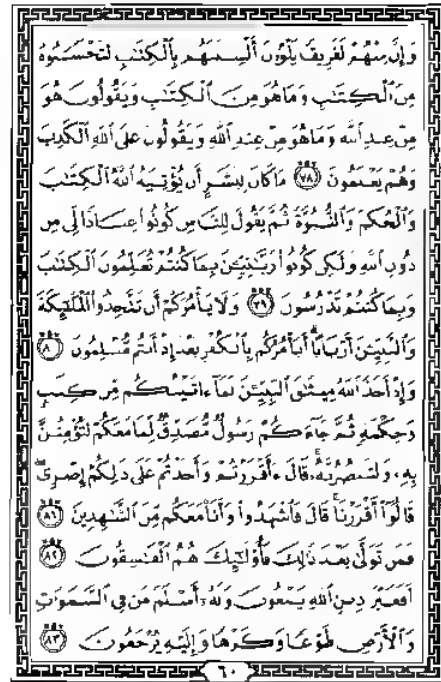 وَإِنَّ مِنْهُمْ لَفَرِيقًا يَلْوُۥنَ أَلْسِنَتَهُم بِٱلْكِتَٰبِ لِتَحْسَبُوهُ
مِنَ ٱلْكِتَٰبِ وَمَا هُوَ مِنَ ٱلْكِتَٰبِ وَيَقُولُونَ هُوَ
مِنْ عِندِ ٱللَّهِ وَمَا هُوَ مِنْ عِندِ ٱللَّهِ وَيَقُولُونَ عَلَى ٱللَّهِ ٱلْكَذِبَ
وَهُمْ يَعْلَمُونَ ٧٨ مَا كَانَ لِبَشَرٍ أَن يُؤْتِيَهُ ٱللَّهُ ٱلْكِتَٰبَ
وَٱلْحُكْمَ وَٱلنُّبُوَّةَ ثُمَّ يَقُولَ لِلنَّاسِ كُونُوا۟ عِبَادًا لِّى مِن
دُونِ ٱللَّهِ وَلَٰكِن كُونُوا۟ رَبَّٰنِيِّۦنَ بِمَا كُنتُمْ تُعَلِّمُونَ ٱلْكِتَٰبَ
وَبِمَا كُنتُمْ تَدْرُسُونَ ٧٩ وَلَا يَأْمُرَكُمْ أَن تَتَّخِذُوا۟ ٱلْمَلَٰٓئِكَةَ
وَٱلنَّبِيِّۦنَ أَرْبَابًا أَيَأْمُرُكُم بِٱلْكُفْرِ بَعْدَ إِذْ أَنتُم مُّسْلِمُونَ ٨٠
وَإِذْ أَخَذَ ٱللَّهُ مِيثَٰقَ ٱلنَّبِيِّۦنَ لَمَآ ءَاتَيْتُكُم مِّن كِتَٰبٍ
وَحِكْمَةٍ ثُمَّ جَآءَكُمْ رَسُولٌ مُّصَدِّقٌ لِّمَا مَعَكُمْ لَتُؤْمِنُنَّ
بِهِۦ وَلَتَنصُرُنَّهُۥ قَالَ ءَأَقْرَرْتُمْ وَأَخَذْتُمْ عَلَىٰ ذَٰلِكُمْ إِصْرِى
قَالُوٓا۟ أَقْرَرْنَا قَالَ فَٱشْهَدُوا۟ وَأَنَا۠ مَعَكُم مِّنَ ٱلشَّٰهِدِينَ ٨١
فَمَن تَوَلَّىٰ بَعْدَ ذَٰلِكَ فَأُو۟لَٰٓئِكَ هُمُ ٱلْفَٰسِقُونَ ٨٢
أَفَغَيْرَ دِينِ ٱللَّهِ يَبْغُونَ وَلَهُۥٓ أَسْلَمَ مَن فِى ٱلسَّمَٰوَٰتِ
وَٱلْأَرْضِ طَوْعًا وَكَرْهًا وَإِلَيْهِ يُرْجَعُونَ ٨٣
٦٠